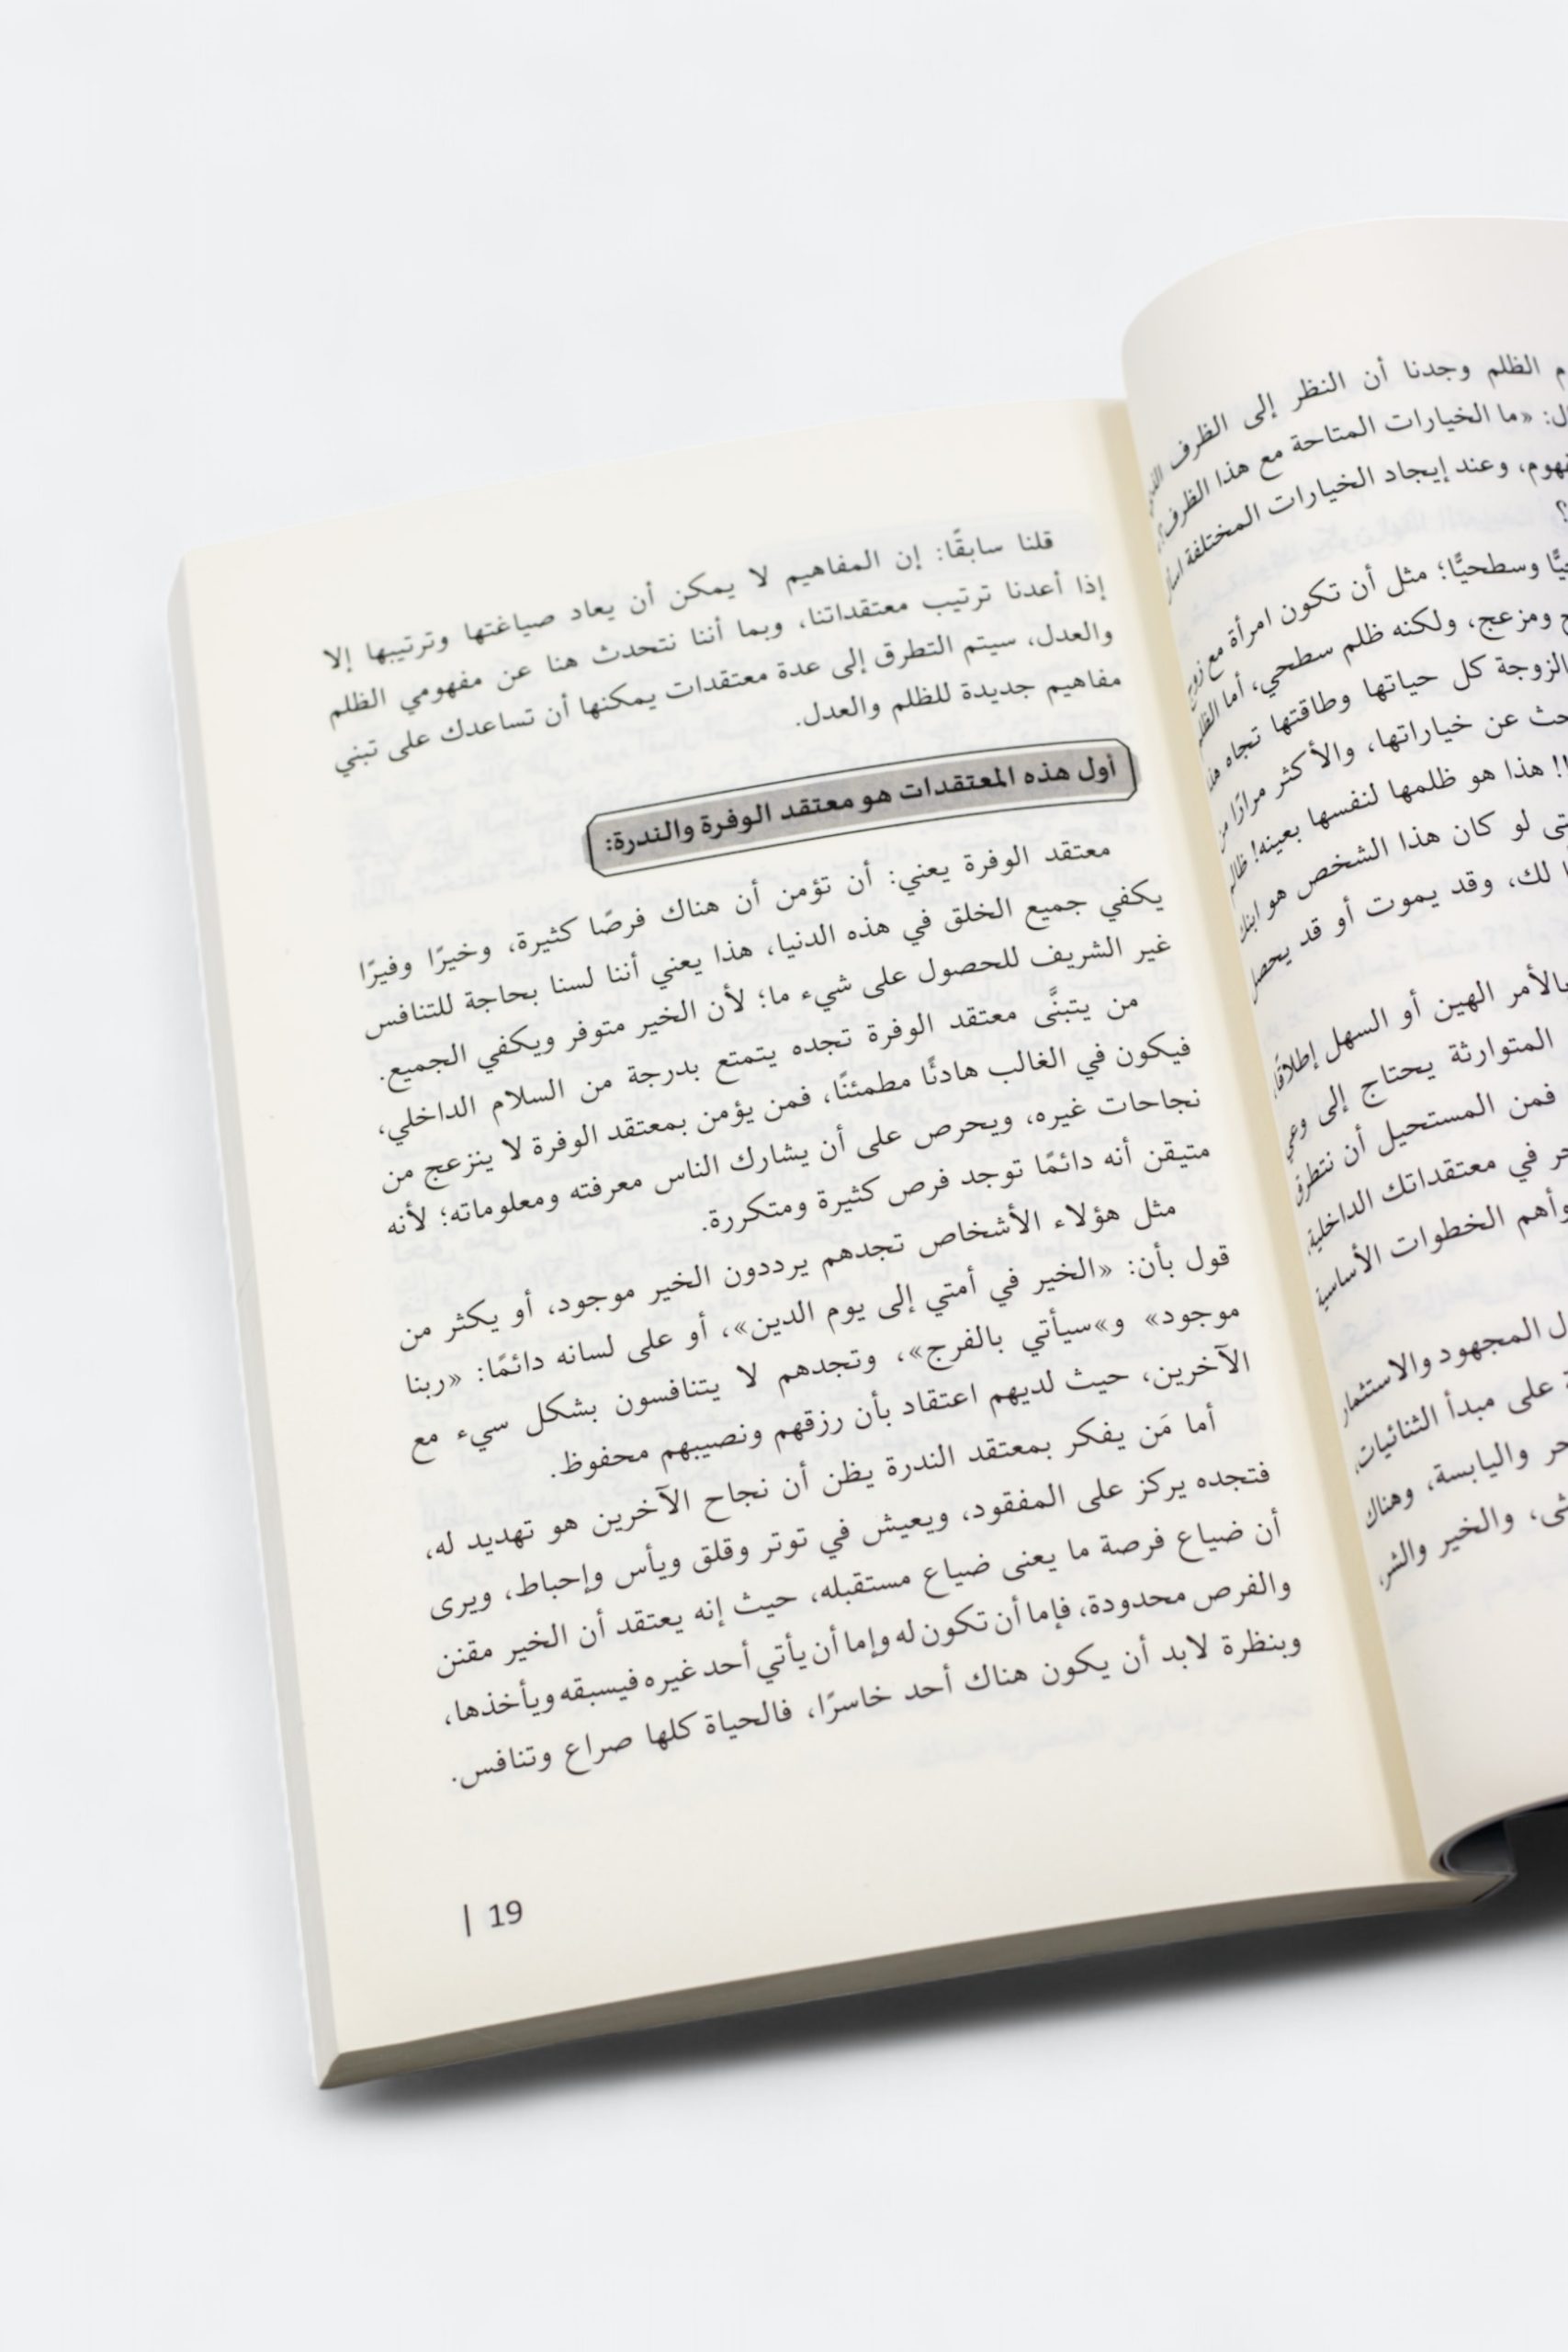 م الظلم وجدنا أن النظر إلى الظرف
ال: «ما الخيارات المتاحة مع هذا الظرف؟
فهوم، وعند إيجاد الخيارات المختلفة
؟
يًّا وسطحيًّا؛ مثل أن تكون امرأة مع زوج
ح ومزعج، ولكنه ظلم سطحي، أما الظلم
الزوجة كل حياتها وطاقتها تجاه هذا
حث عن خياراتها، والأكثر مرارًا من
!! هذا هو ظلمها لنفسها بعينه! ظالم
تى لو كان هذا الشخص هو ابنك
ا لك، وقد يموت أو قد يحصل
بالأمر الهين أو السهل إطلاقًا،
المتوارثة يحتاج إلى وعي
فمن المستحيل أن نتطرق
حر في معتقداتك الداخلية،
وأهم الخطوات الأساسية
ل المجهود والاستثمار
على مبدأ الثنائيات،
حر واليابسة، وهناك
ثى، والخير والشر،
قلنا سابقًا: إن المفاهيم لا يمكن أن يعاد صياغتها وترتيبها إلا
إذا أعدنا ترتيب معتقداتنا، وبما أننا نتحدث هنا عن مفهومي الظلم
والعدل، سيتم التطرق إلى عدة معتقدات يمكنها أن تساعدك على تبني
مفاهيم جديدة للظلم والعدل.
أول هذه المعتقدات هو معتقد الوفرة والندرة:
معتقد الوفرة يعني: أن تؤمن أن هناك فرصًا كثيرة، وخيرًا وفيرًا
يكفي جميع الخلق في هذه الدنيا، هذا يعني أننا لسنا بحاجة للتنافس
غير الشريف للحصول على شيء ما؛ لأن الخير متوفر ويكفي الجميع.
من يتبنَّى معتقد الوفرة تجده يتمتع بدرجة من السلام الداخلي،
فيكون في الغالب هادئًا مطمئنًا، فمن يؤمن بمعتقد الوفرة لا ينزعج من
نجاحات غيره، ويحرص على أن يشارك الناس معرفته ومعلوماته؛ لأنه
متيقن أنه دائمًا توجد فرص كثيرة ومتكررة.
مثل هؤلاء الأشخاص تجدهم يرددون الخير موجود، أو يكثر من
قول بأن: «الخير في أمتي إلى يوم الدين»، أو على لسانه دائمًا: «ربنا
موجود» و»سيأتي بالفرج»، وتجدهم لا يتنافسون بشكل سيء مع
الآخرين، حيث لديهم اعتقاد بأن رزقهم ونصيبهم محفوظ.
أما مَن يفكر بمعتقد الندرة يظن أن نجاح الآخرين هو تهديد له،
فتجده يركز على المفقود، ويعيش في توتر وقلق ويأس وإحباط، ويرى
أن ضياع فرصة ما يعنى ضياع مستقبله، حيث إنه يعتقد أن الخير مقنن
والفرص محدودة، فإما أن تكون له وإما أن يأتي أحد غيره فيسبقه ويأخذها،
وبنظرة لابد أن يكون هناك أحد خاسرًا، فالحياة كلها صراع وتنافس.
| 19